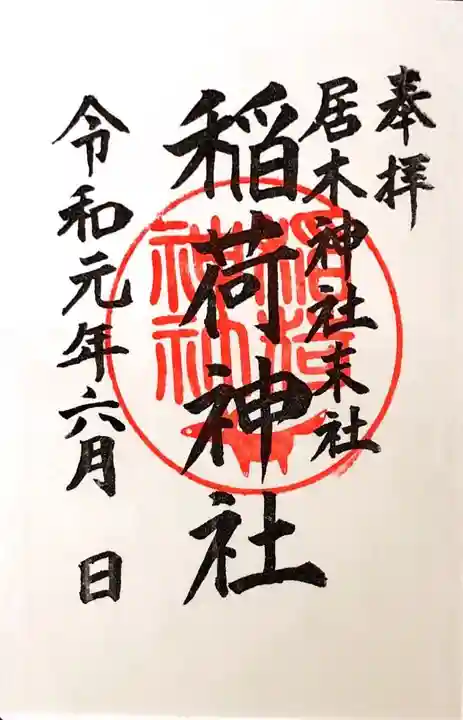 奉拝
居木神社末社
稲荷神社
令和元年六月　日